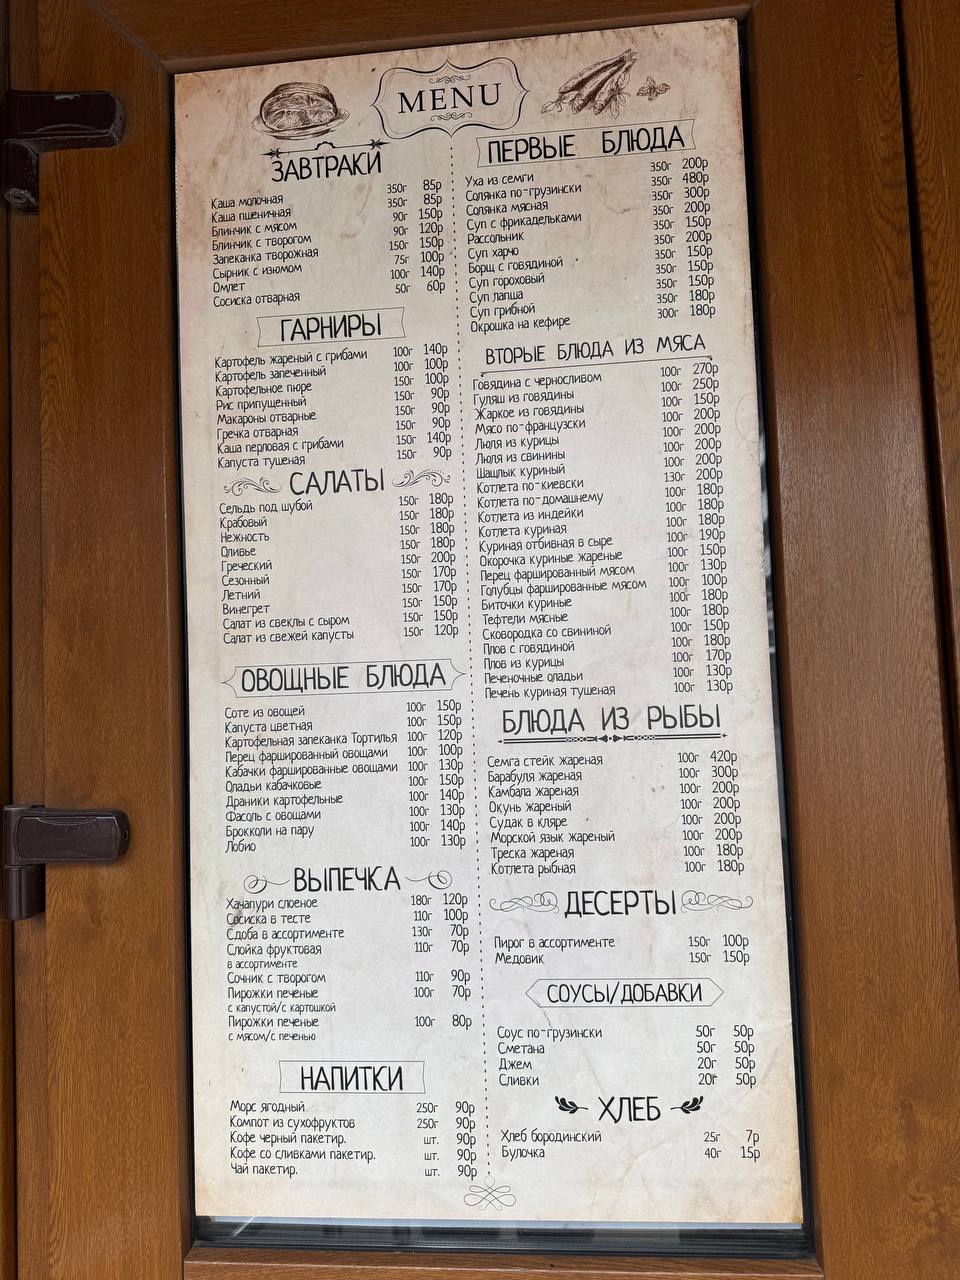 MENU
ЗАВТРАКИ
Каша молочная 350г 85р
Каша пшеничная 350г 85р
Блинчик с мясом 90г 150р
Блинчик с творогом 90г 120р
Запеканка творожная 150г 150р
Сырник с изюмом 75г 100р
Омлет 100г 140р
Сосиска отварная 50г 60р
ГАРНИРЫ
Картофель жареный с грибами 100г 140р
Картофель запеченный 100г 100р
Картофельное пюре 150г 100р
Рис припущенный 150г 90р
Макароны отварные 150г 90р
Гречка отварная 150г 90р
Каша перловая с грибами 150г 140р
Капуста тушеная 150г 90р
САЛАТЫ
Сельдь под шубой 150г 180р
Крабовый 150г 180р
Нежность 150г 180р
Оливье 150г 180р
Греческий 150г 200р
Сезонный 150г 170р
Летний 150г 170р
Винегрет 150г 150р
Салат из свеклы с сыром 150г 150р
Салат из свежей капусты 150г 120р
ОВОЩНЫЕ БЛЮДА
Соте из овощей 100г 150р
Капуста цветная 100г 150р
Картофельная запеканка Тортилья 100г 120р
Перец фаршированный овощами 100г 100р
Кабачки фаршированные овощами 100г 130р
Оладьи кабачковые 100г 150р
Драники картофельные 100г 140р
Фасоль с овощами 100г 130р
Брокколи на пару 100г 140р
Лобио 100г 130р
ВЫПЕЧКА
Хачапури слоеное 180г 120р
Сосиска в тесте 110г 100р
Сдоба в ассортименте 130г 70р
Слойка фруктовая 110г 70р
в ассортименте
Сочник с творогом 110г 90р
Пирожки печеные 100г 70р
с капустой/с картошкой
Пирожки печеные 100г 80р
с мясом/с печенью
НАПИТКИ
Морс ягодный 250г 90р
Компот из сухофруктов 250г 90р
Кофе черный пакетир. шт. 90р
Кофе со сливками пакетир. шт. 90р
Чай пакетир. шт. 90р
ПЕРВЫЕ БЛЮДА
Уха из семги 350г 200р
Солянка по-грузински 350г 480р
Солянка мясная 350г 300р
Суп с фрикадельками 350г 200р
Рассольник 350г 150р
Суп харчо 350г 200р
Борщ с говядиной 350г 150р
Суп гороховый 350г 150р
Суп лапша 350г 150р
Суп грибной 350г 180р
Окрошка на кефире 300г 180р
ВТОРЫЕ БЛЮДА ИЗ МЯСА
Говядина с черносливом 100г 270р
Гуляш из говядины 100г 250р
Жаркое из говядины 100г 150р
Мясо по-французски 100г 200р
Люля из курицы 100г 200р
Люля из свинины 100г 200р
Шашлык куриный 100г 200р
Котлета по-киевски 130г 200р
Котлета по-домашнему 100г 180р
Котлета из индейки 100г 180р
Котлета куриная 100г 180р
Куриная отбивная в сыре 100г 190р
Окорочка куриные жареные 100г 150р
Перец фаршированный мясом 100г 130р
Голубцы фаршированные мясом 100г 100р
Биточки куриные 100г 180р
Тефтели мясные 100г 180р
Сковородка со свининой 100г 150р
Плов с говядиной 100г 180р
Плов из курицы 100г 170р
Печеночные оладьи 100г 130р
Печень куриная тушеная 100г 130р
БЛЮДА ИЗ РЫБЫ
Семга стейк жареная 100г 420р
Барабуля жареная 100г 300р
Камбала жареная 100г 200р
Окунь жареный 100г 200р
Судак в кляре 100г 200р
Морской язык жареный 100г 200р
Треска жареная 100г 180р
Котлета рыбная 100г 180р
ДЕСЕРТЫ
Пирог в ассортименте 150г 100р
Медовик 150г 150р
СОУСЫ/ДОБАВКИ
Соус по-грузински 50г 50р
Сметана 50г 50р
Джем 20г 50р
Сливки 20г 50р
ХЛЕБ
Хлеб бородинский 25г 7р
Булочка 40г 15р